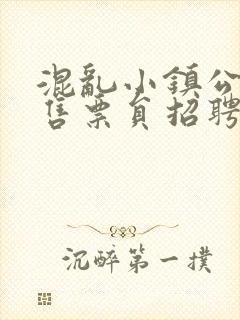 混亂小鎮公
售票員招聘
沉醉第一撲